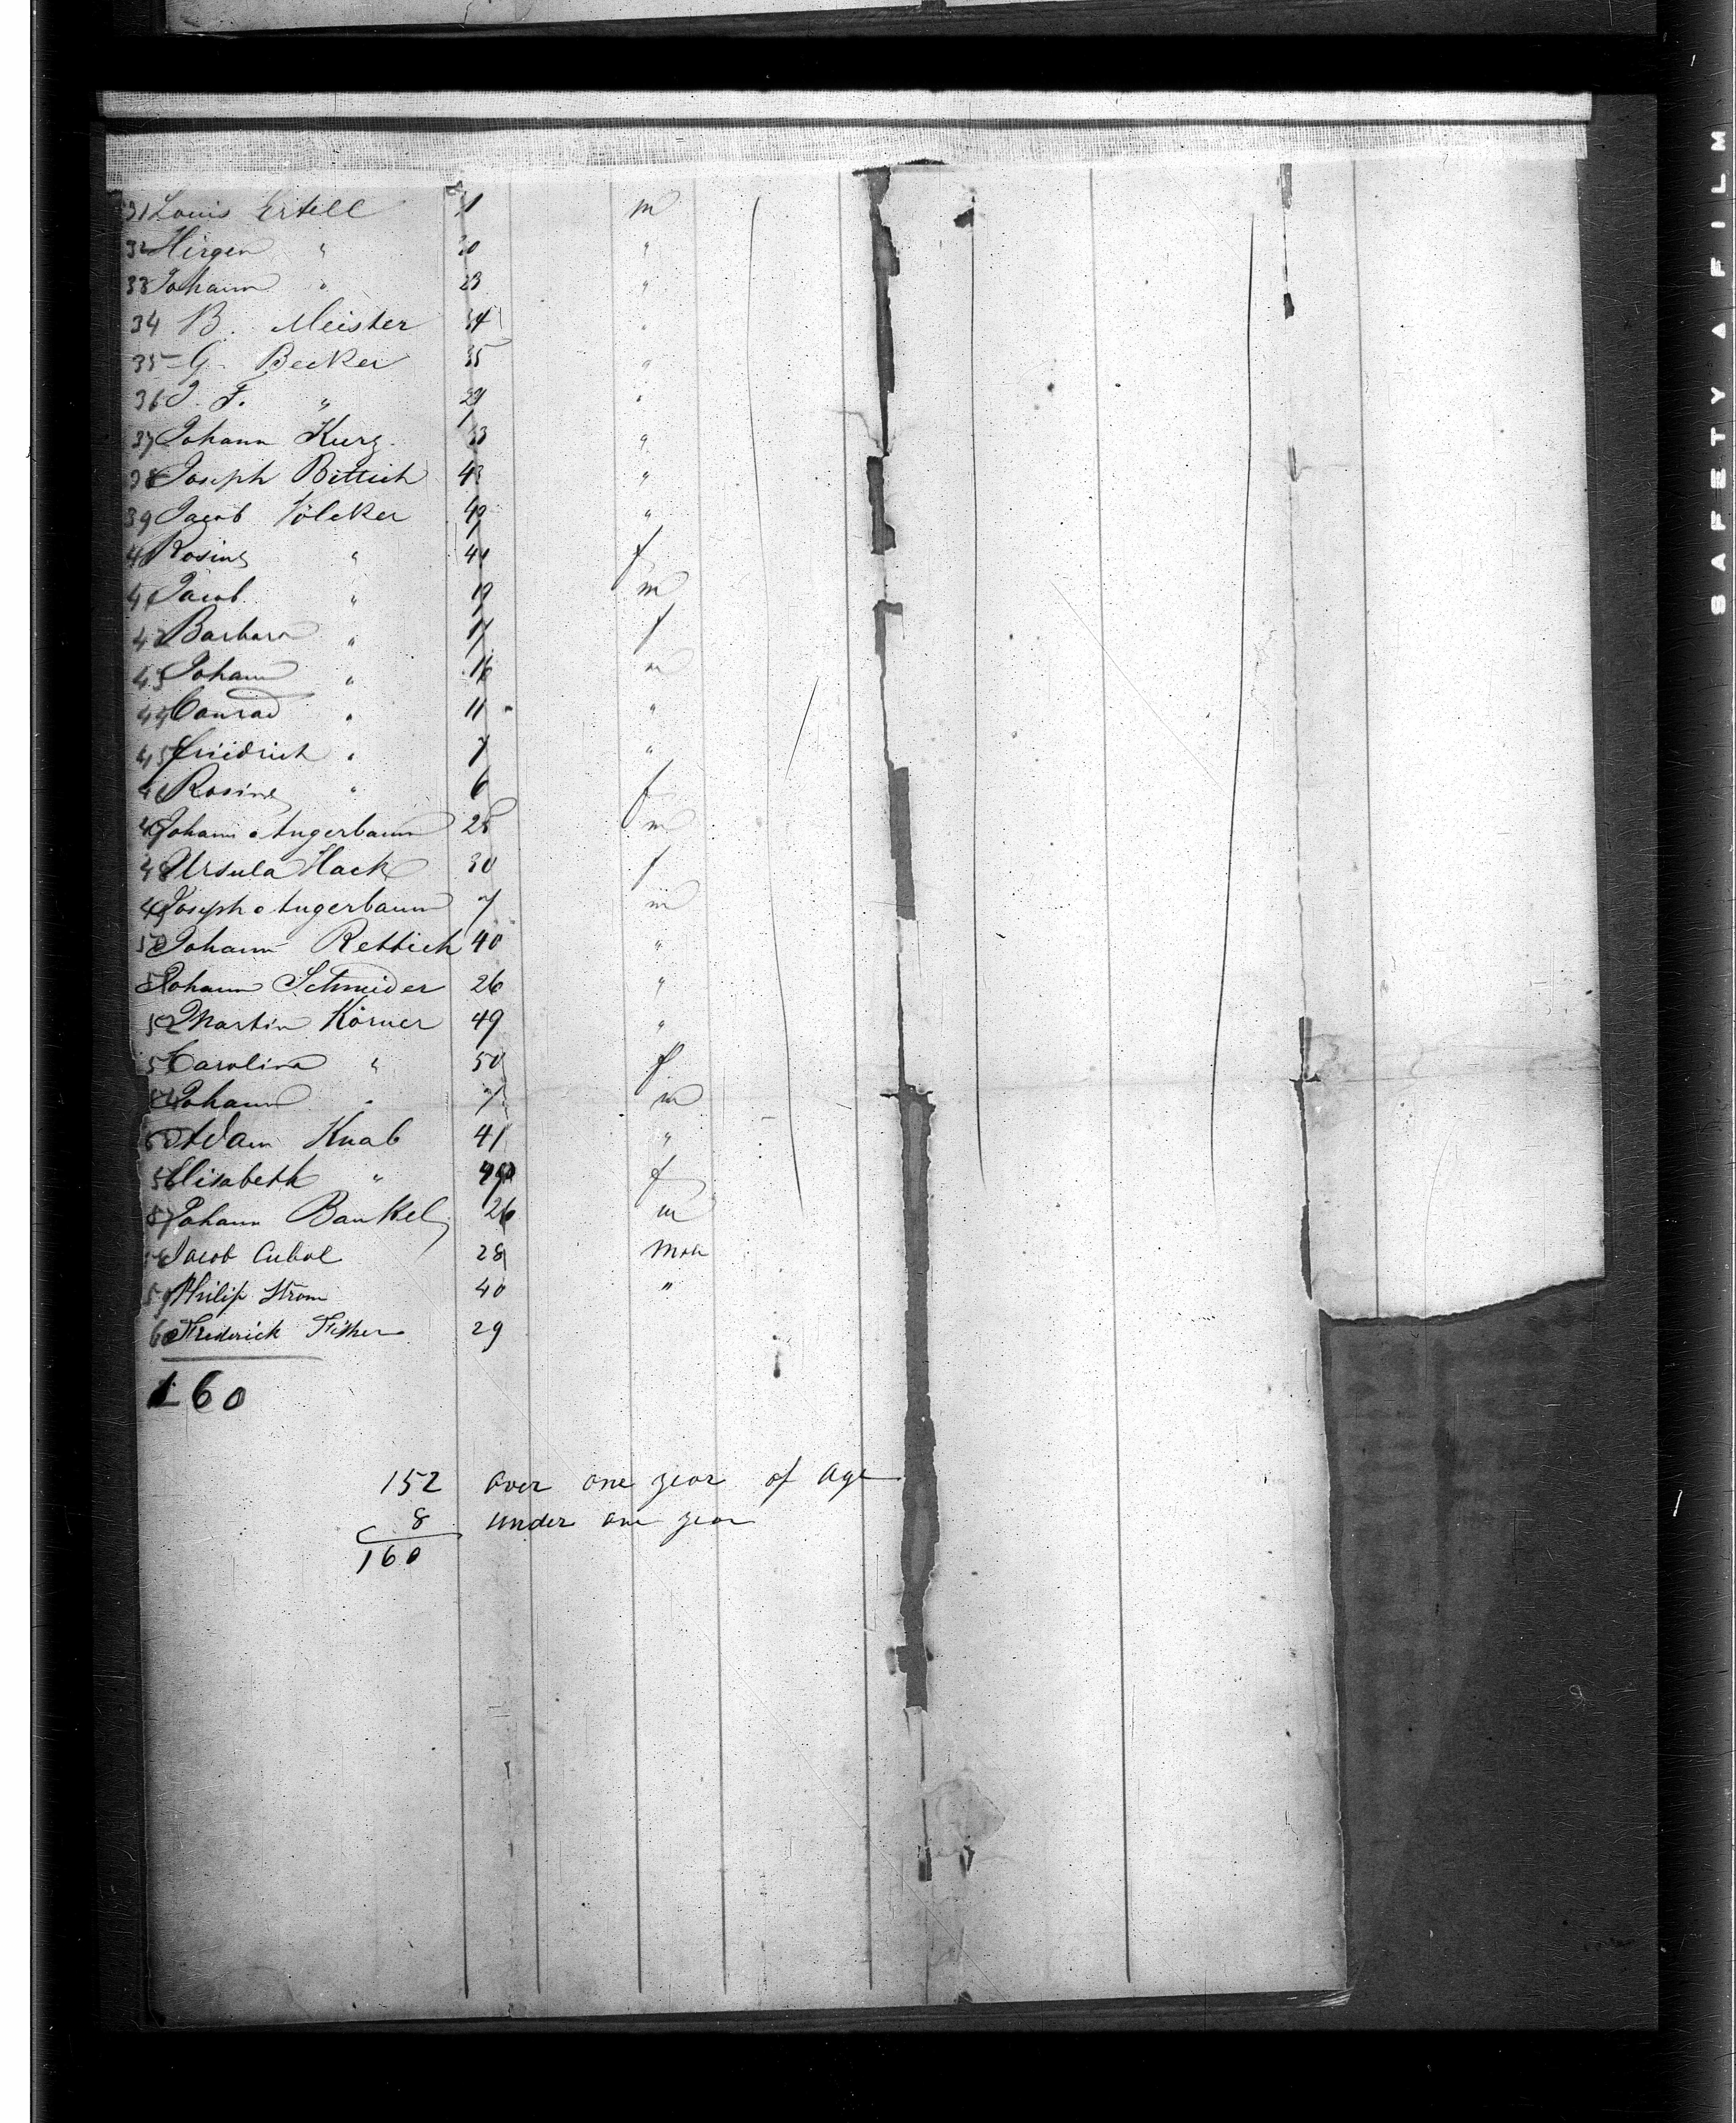 31 Louis Ertell 31 m
32 Hirgen " 30 "
33 Johann " 23 "
34 B. Meister 34 "
35 G. Becker 35 "
36 J. F. " 29 "
37 Johann Kurz 33 "
38 Joseph Bittich 43 "
39 Jacob Völcker 49 "
40 Rosina " 41 f
41 Jacob " 19 m
42 Barbara " 17 f
43 Johann " 16 m
44 Conrad " 11 "
45 Friedrich " 7 "
46 Rosina " 6 f
47 Johann Angerbaum 28 m
48 Ursula Hack 30 f
49 Joseph Angerbaum 7 m
50 Johann Rettich 40 "
51 Johann Schmider 26 "
52 Martin Körner 49 "
53 Carolina " 50 f
54 Johann " 7 m
55 Adam Knab 41 "
56 Elisabeth " f
57 Johann Bankel 26 m
58 Jacob Cubol 28 Man
59 Philip Strom 40 "
60 Frederick Fisher 29
160
152 over one year of age
8 under one year
160
SAFETY FILM